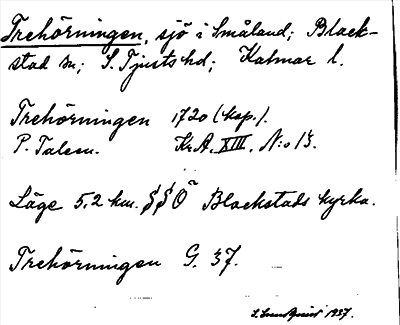 Trehörningen, sjö i Småland; Black-
stad sn; S. Tjusts hd; Kalmar l.
Trehörningen 1720 (kop.).
P. Talesn. Kr.A. XIII. N:o 13.
Läge 5,2 km. SSO Blackstads kyrka.
Trehörningen G. 37.
1937.